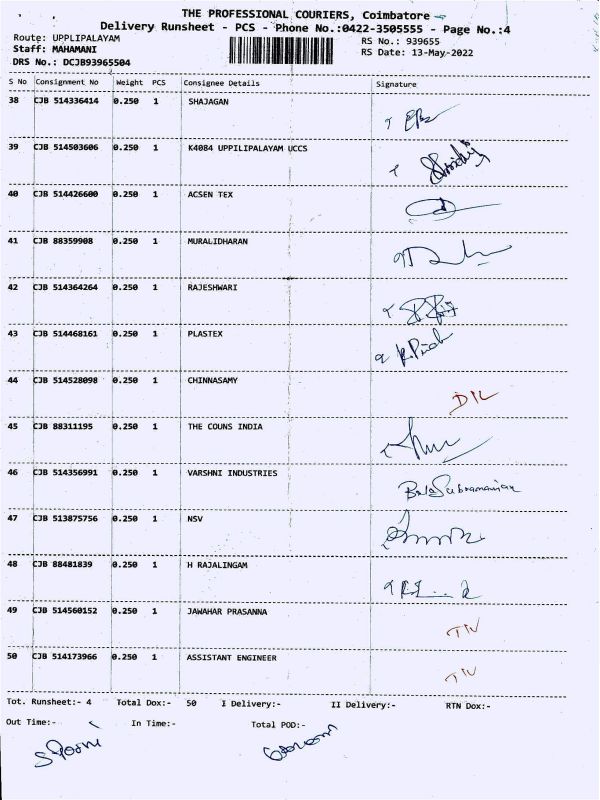 THE PROFESSIONAL COURIERS, Coimbatore
Delivery Runsheet - PCS - Phone No.:0422-3505555 - Page No.:4
Route: UPPLIPALAYAM RS No.: 939655
Staff: MAHAMANI RS Date: 13-May-2022
DRS No.: DCJB93965504
S No Consignment No Weight PCS Consignee Details Signature
38 CJB 514336414 0.250 1 SHAJAGAN
39 CJB 514503606 0.250 1 K4084 UPPILIPALAYAM UCCS
40 CJB 514426600 0.250 1 ACSEN TEX
41 CJB 88359908 0.250 1 MURALIDHARAN
42 CJB 514364264 0.250 1 RAJESHWARI
43 CJB 514468161 0.250 1 PLASTEX
44 CJB 514528098 0.250 1 CHINNASAMY D/L
45 CJB 88311195 0.250 1 THE COUNS INDIA
46 CJB 514356991 0.250 1 VARSHNI INDUSTRIES BalaSubramanian
47 CJB 513875756 0.250 1 NSV
48 CJB 88481839 0.250 1 H RAJALINGAM
49 CJB 514560152 0.250 1 JAWAHAR PRASANNA
50 CJB 514173966 0.250 1 ASSISTANT ENGINEER
Tot. Runsheet:- 4 Total Dox:- 50 I Delivery:- II Delivery:- RTN Dox:-
Out Time:- In Time:- Total POD:-